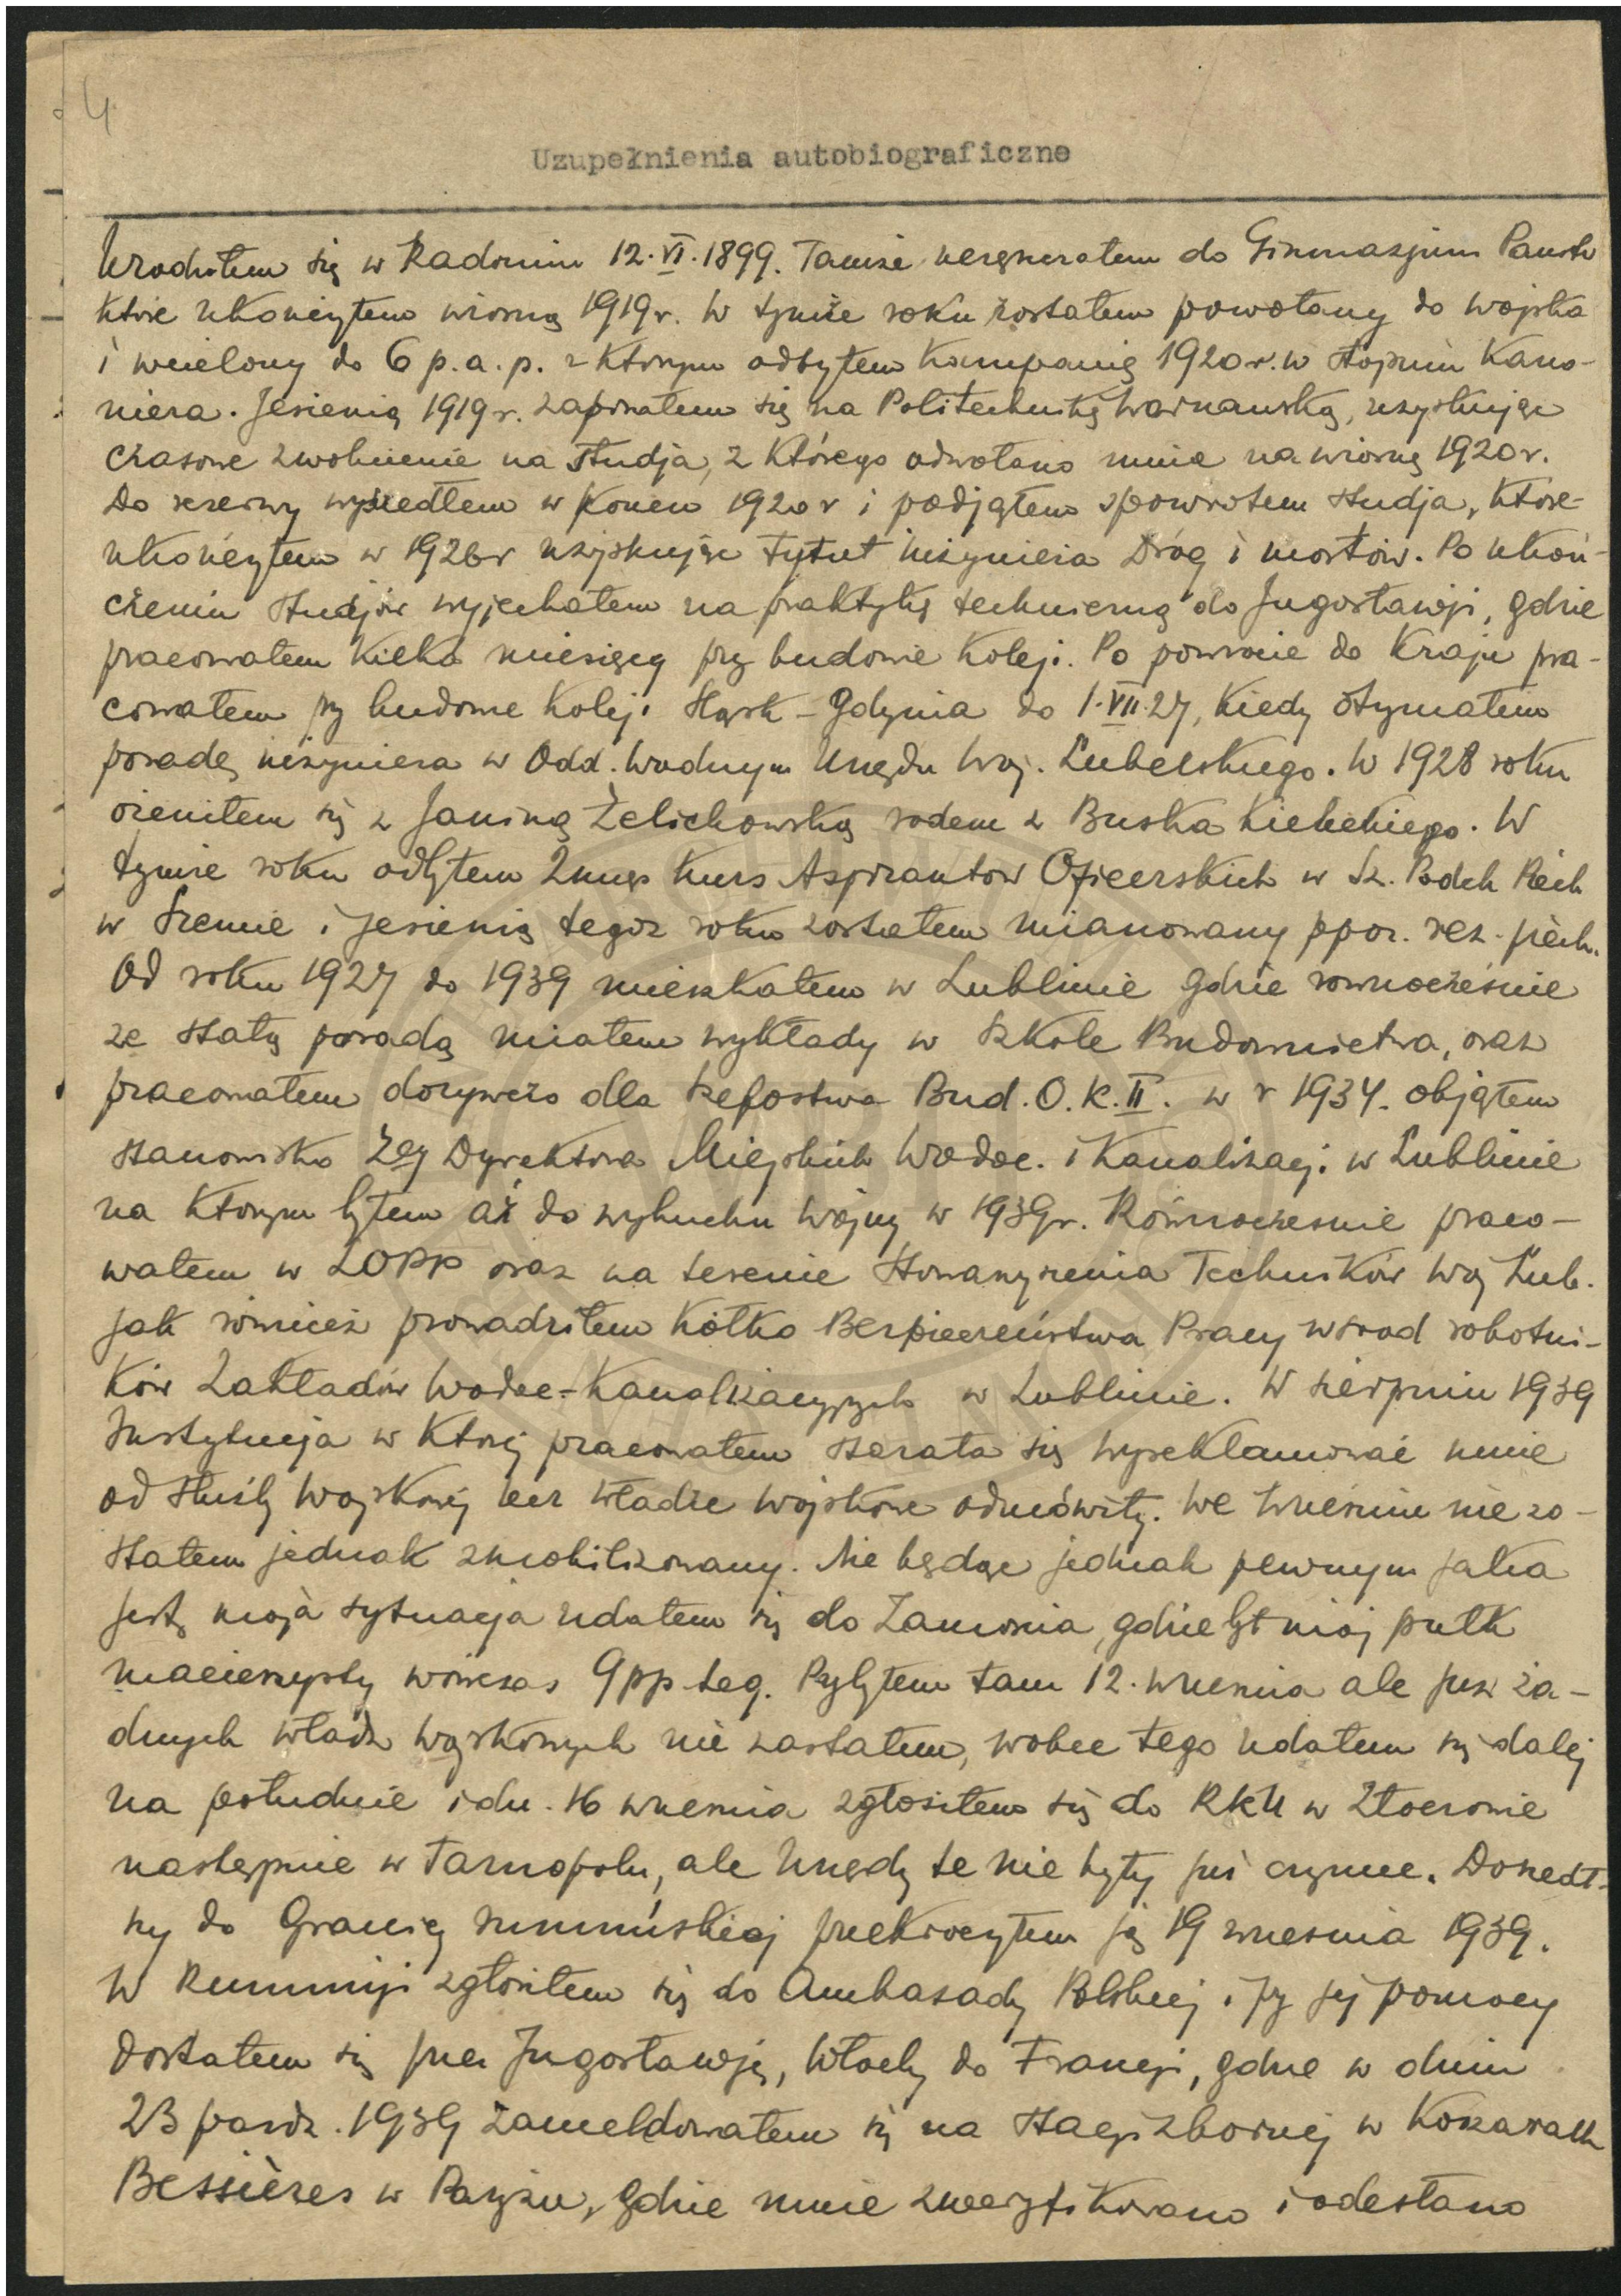 4
Uzupełnienia autobiograficzne
Urodziłem się w Radomiu 12.VI.1899. Tamże uczęszczałem do Gimnazjum Państw
które ukończyłem wiosną 1919r. W tymże roku zostałem powołany do wojska
i wcielony do 6 p.a.p. z którym odbyłem Kampanię 1920r. w stopniu Kano-
niera. Jesienią 1919r. zapisałem się na Politechnikę Warszawską, uzyskując
czasowe zwolnienie na studja, z którego odwołano mnie na wiosnę 1920r.
Do rezerwy wyszedłem w końcu 1920r i podjąłem zpowrotem studja, które
ukończyłem w 1926r uzyskując tytuł inżyniera Dróg i mostów. Po ukoń-
czeniu studjów wyjechałem na praktykę techniczną do Jugosławji, gdzie
pracowałem kilka miesięcy przy budowie kolej. Po powrocie do Kraju pra-
cowałem przy budowie kolej. Śląsk - Gdynia do 1.VII.27, kiedy otrzymałem
posadę inżyniera w Odd. Wodnym Urzędu Woj. Lubelskiego. W 1928 roku
ożeniłem się z Janiną Żelichowską rodem z Buska Kieleckiego. W
tymże roku odbyłem 2mies Kurs Aspirantów Oficerskich w Sz. Podch Piech
w Śremie i jesienią tegoż roku zostałem mianowany ppor. rez. piech.
Od roku 1927 do 1939 mieszkałem w Lublinie gdzie równocześnie
ze stałą posadą miałem wykłady w Szkole Budownictwa, oraz
pracowałem dorywczo dla Szefostwa Bud. O.K.II. w r 1934. objąłem
stanowisko Zcy Dyrektora Miejskich Wodoc. i Kanalizacji w Lublinie
na którym byłem aż do wybuchu wojny w 1939r. Równocześnie praco-
wałem w LOPP oraz na terenie Stowarzyszenia Techników Woj Lub.
jak również prowadziłem Kółko Bezpieczeństwa Pracy wśród robotni-
ków Zakładów Wodoc-Kanalizacyjnych w Lublinie. W sierpniu 1939
Instytucja w której pracowałem starała się wyreklamować mnie
od służby wojskowej lecz władze wojskowe odmówiły. We wrześniu nie zo-
stałem jednak zmobilizowany. Nie będąc jednak pewnym jaka
jest moja sytuacja udałem się do Zamościa, gdzie był mój pułk
macierzysty wówczas 9pp leg. Przybyłem tam 12. września ale już ża-
dnych władz wojskowych nie zastałem, wobec tego udałem się dalej
na południe i dn. 16 września zgłosiłem się do RKU w Złoczowie
następnie w Tarnopolu, ale Urzędy te nie były już czynne. Doszedł-
szy do Granicy rumuńskiej przekroczyłem ją 19 września 1939.
W Rumunji zgłosiłem się do Ambasady Polskiej i przy jej pomocy
dostałem się przez Jugosławję, Włochy do Francji, gdzie w dniu
23 paźdz. 1939 zameldowałem się na stacji zbornej w Koszarach
Bessières w Paryżu, gdzie mnie zweryfikowano i odesłano